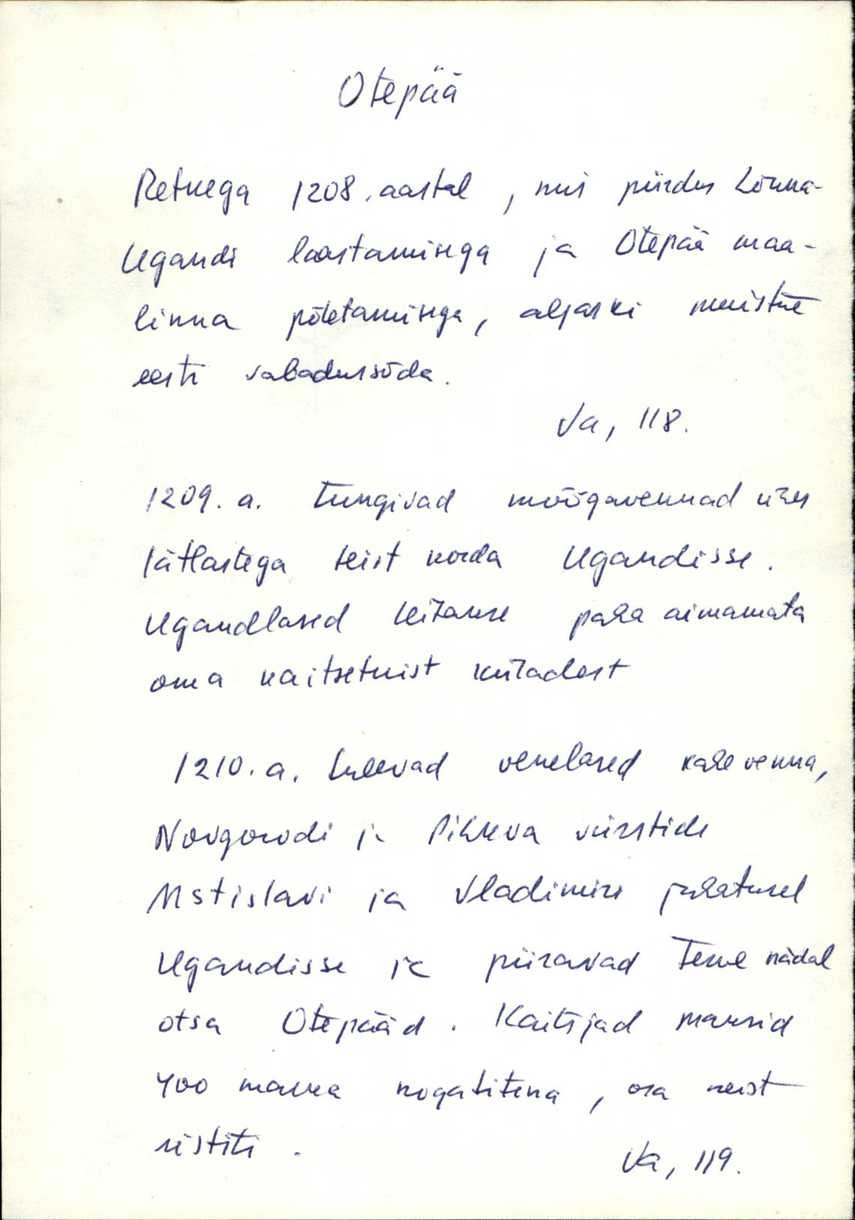 Otepää
Retkega 1208. aastal, mis piirdus Lõuna-
Ugandi laastamisega ja Otepää maa-
linna põletamisega, algaski muistne
eesti vabadussõda.
Va, 118.
1209. a. tungivad mõõgavennad ühes
lätlastega teist korda Ugandisse.
Ugandlased leitakse paha aimamata
oma kaitsetuist küladest
1210. a. tulevad venelased kahe venna,
Novgorodi ja Pihkva vürstide
Mstislavi ja Vladimiri juhatusel
Ugandisse ja piiravad terve nädal
otsa Otepääd. Kaitsjad maksid
400 marka nogatitena, osa neist
ristiti.
Va, 119.